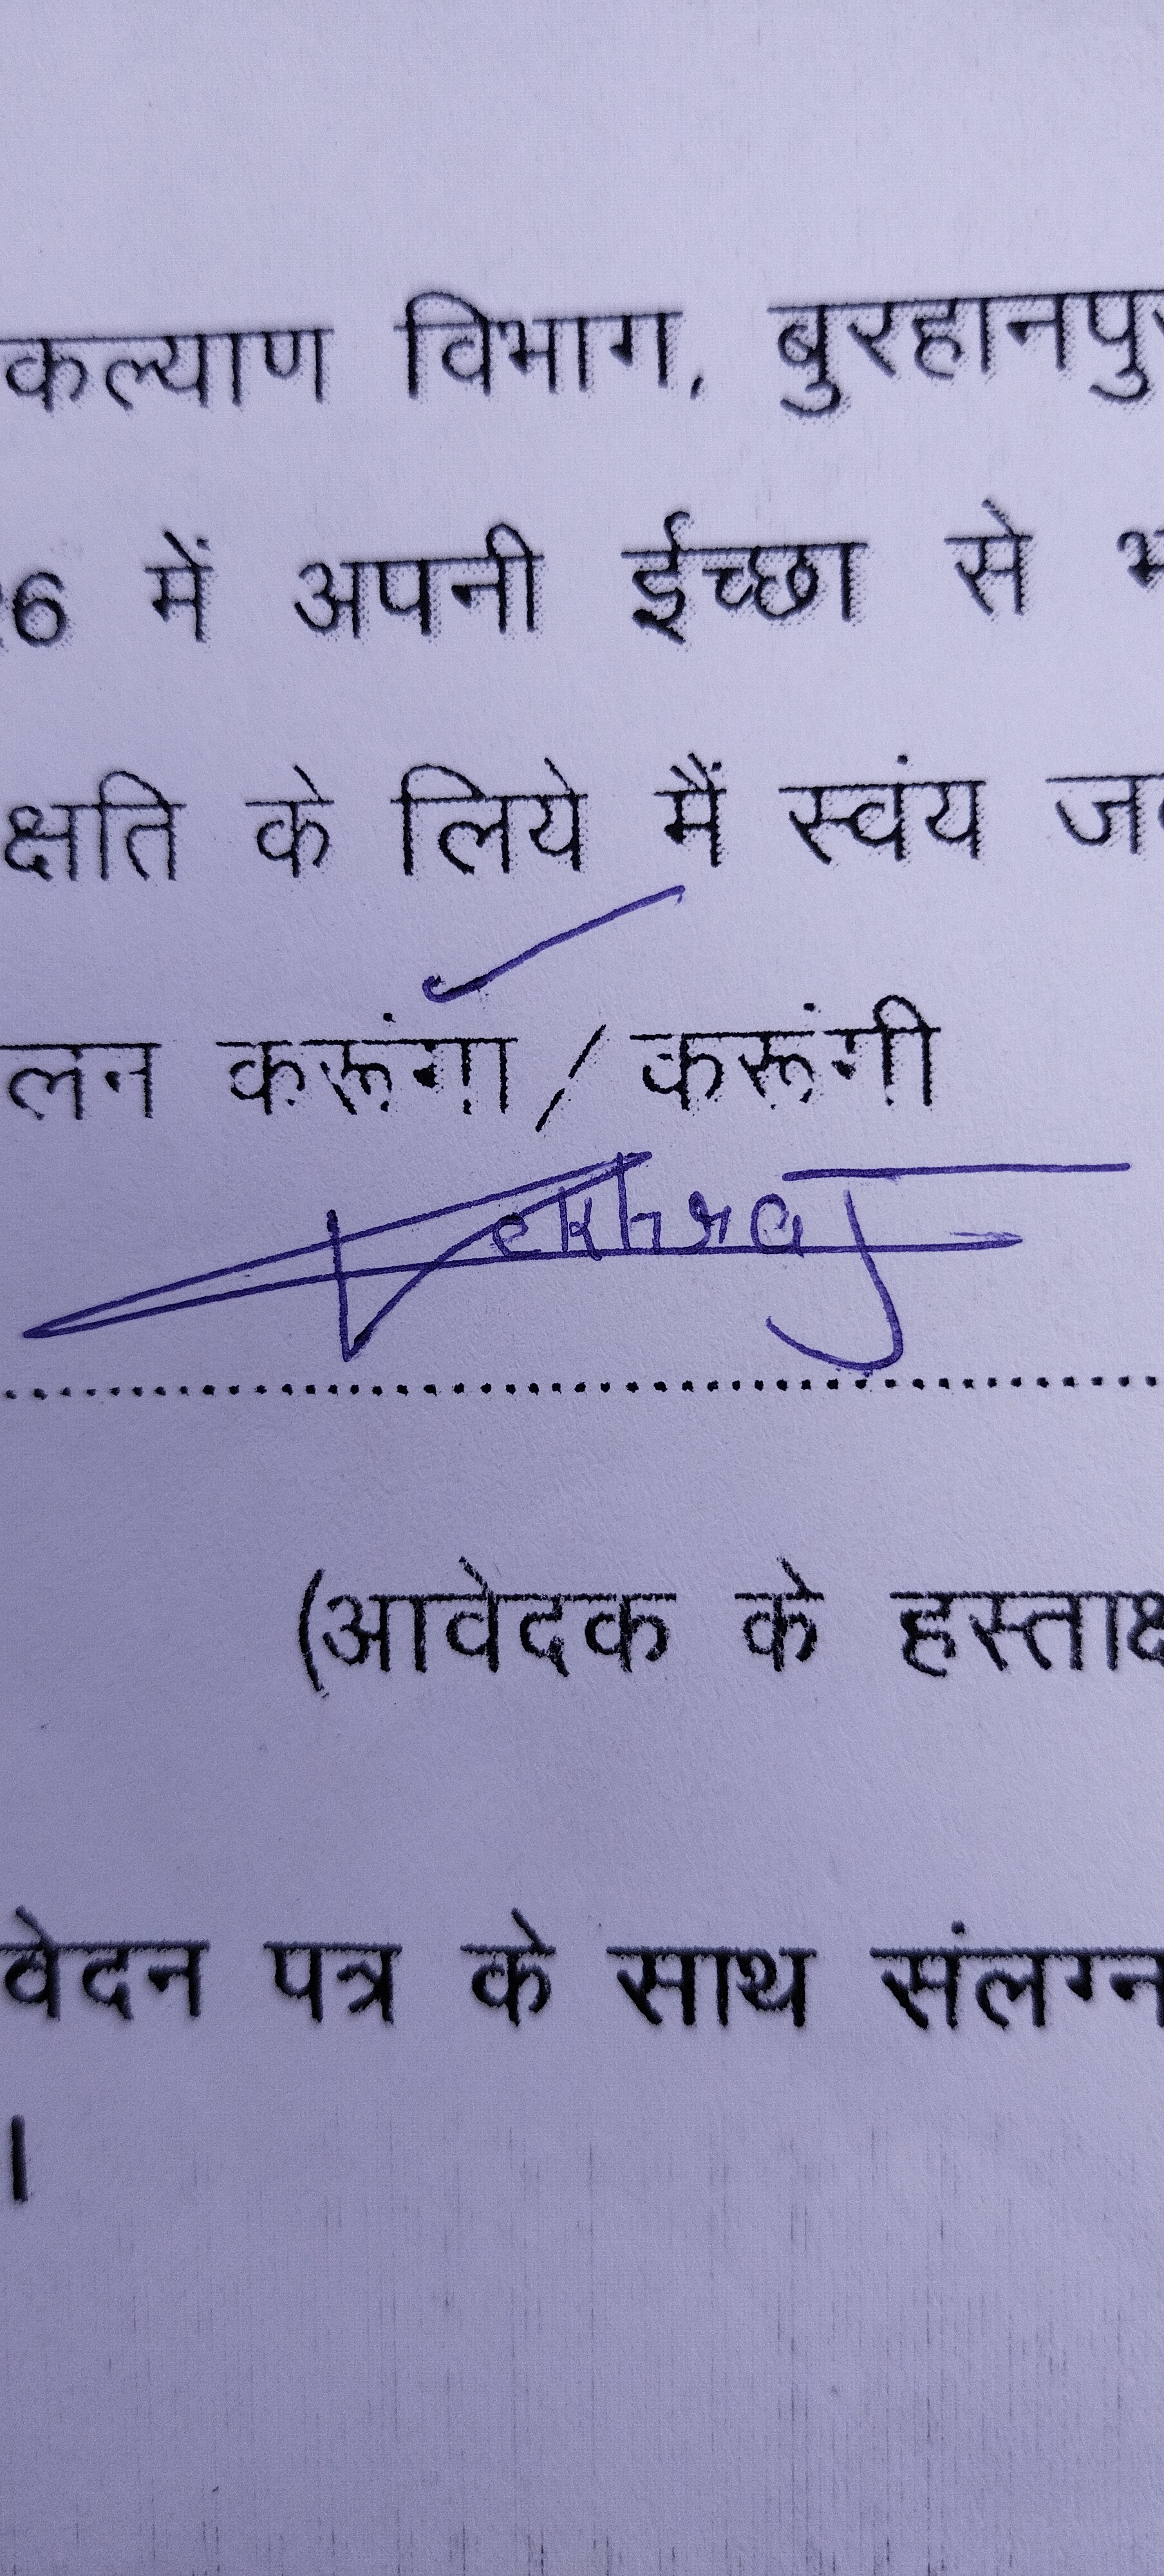 कल्याण विभाग, बुरहानपुर
26 में अपनी ईच्छा से
क्षति के लिये मैं स्वंय
लन करूंगा / करूंगी
Lekhraj
(आवेदक के हस्ताक्ष
वेदन पत्र के साथ संलग्न
।